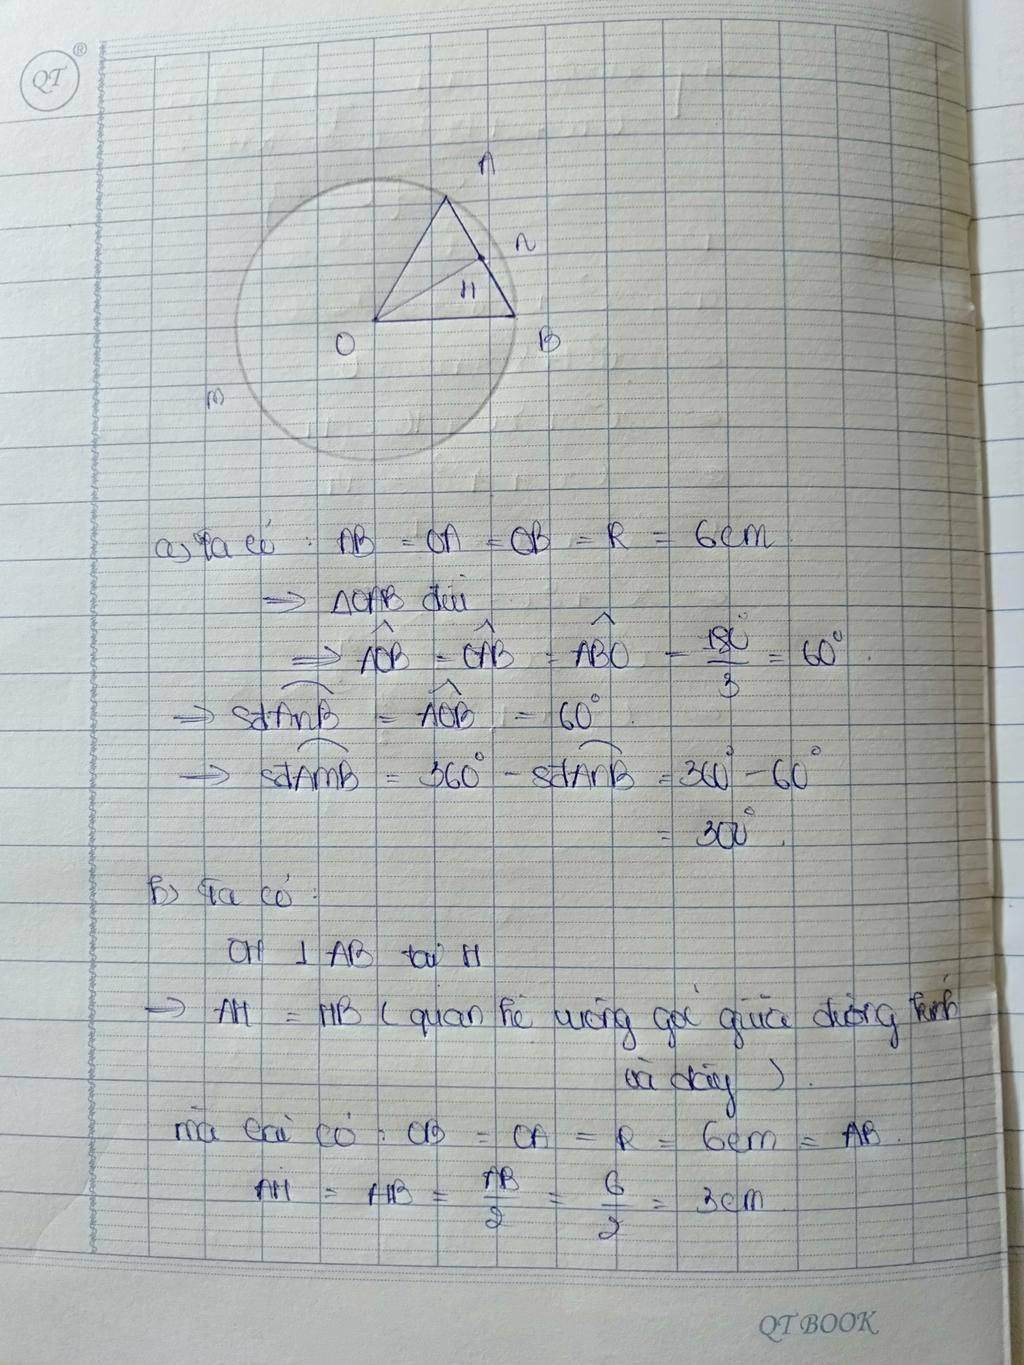 QT ®
A
n
H
O
B
m
a) Ta có : AB = OA = OB = R = 6cm
⇒ ΔOAB đều
⇒ \widehat{AOB} = \widehat{OAB} = \widehat{ABO} = \frac{180°}{3} = 60°.
⇒ sđ\overset{\frown}{AnB} = \widehat{AOB} = 60°.
⇒ sđ\overset{\frown}{AmB} = 360° - sđ\overset{\frown}{AnB} = 360° - 60°
= 300°.
b) Ta có :
OH ⊥ AB tại H
⇒ AH = HB ( quan hệ vuông góc giữa đường kính
và dây ).
mà có : OB = OA = R = 6cm = AB.
AH = HB = \frac{AB}{2} = \frac{6}{2} = 3cm
QT BOOK